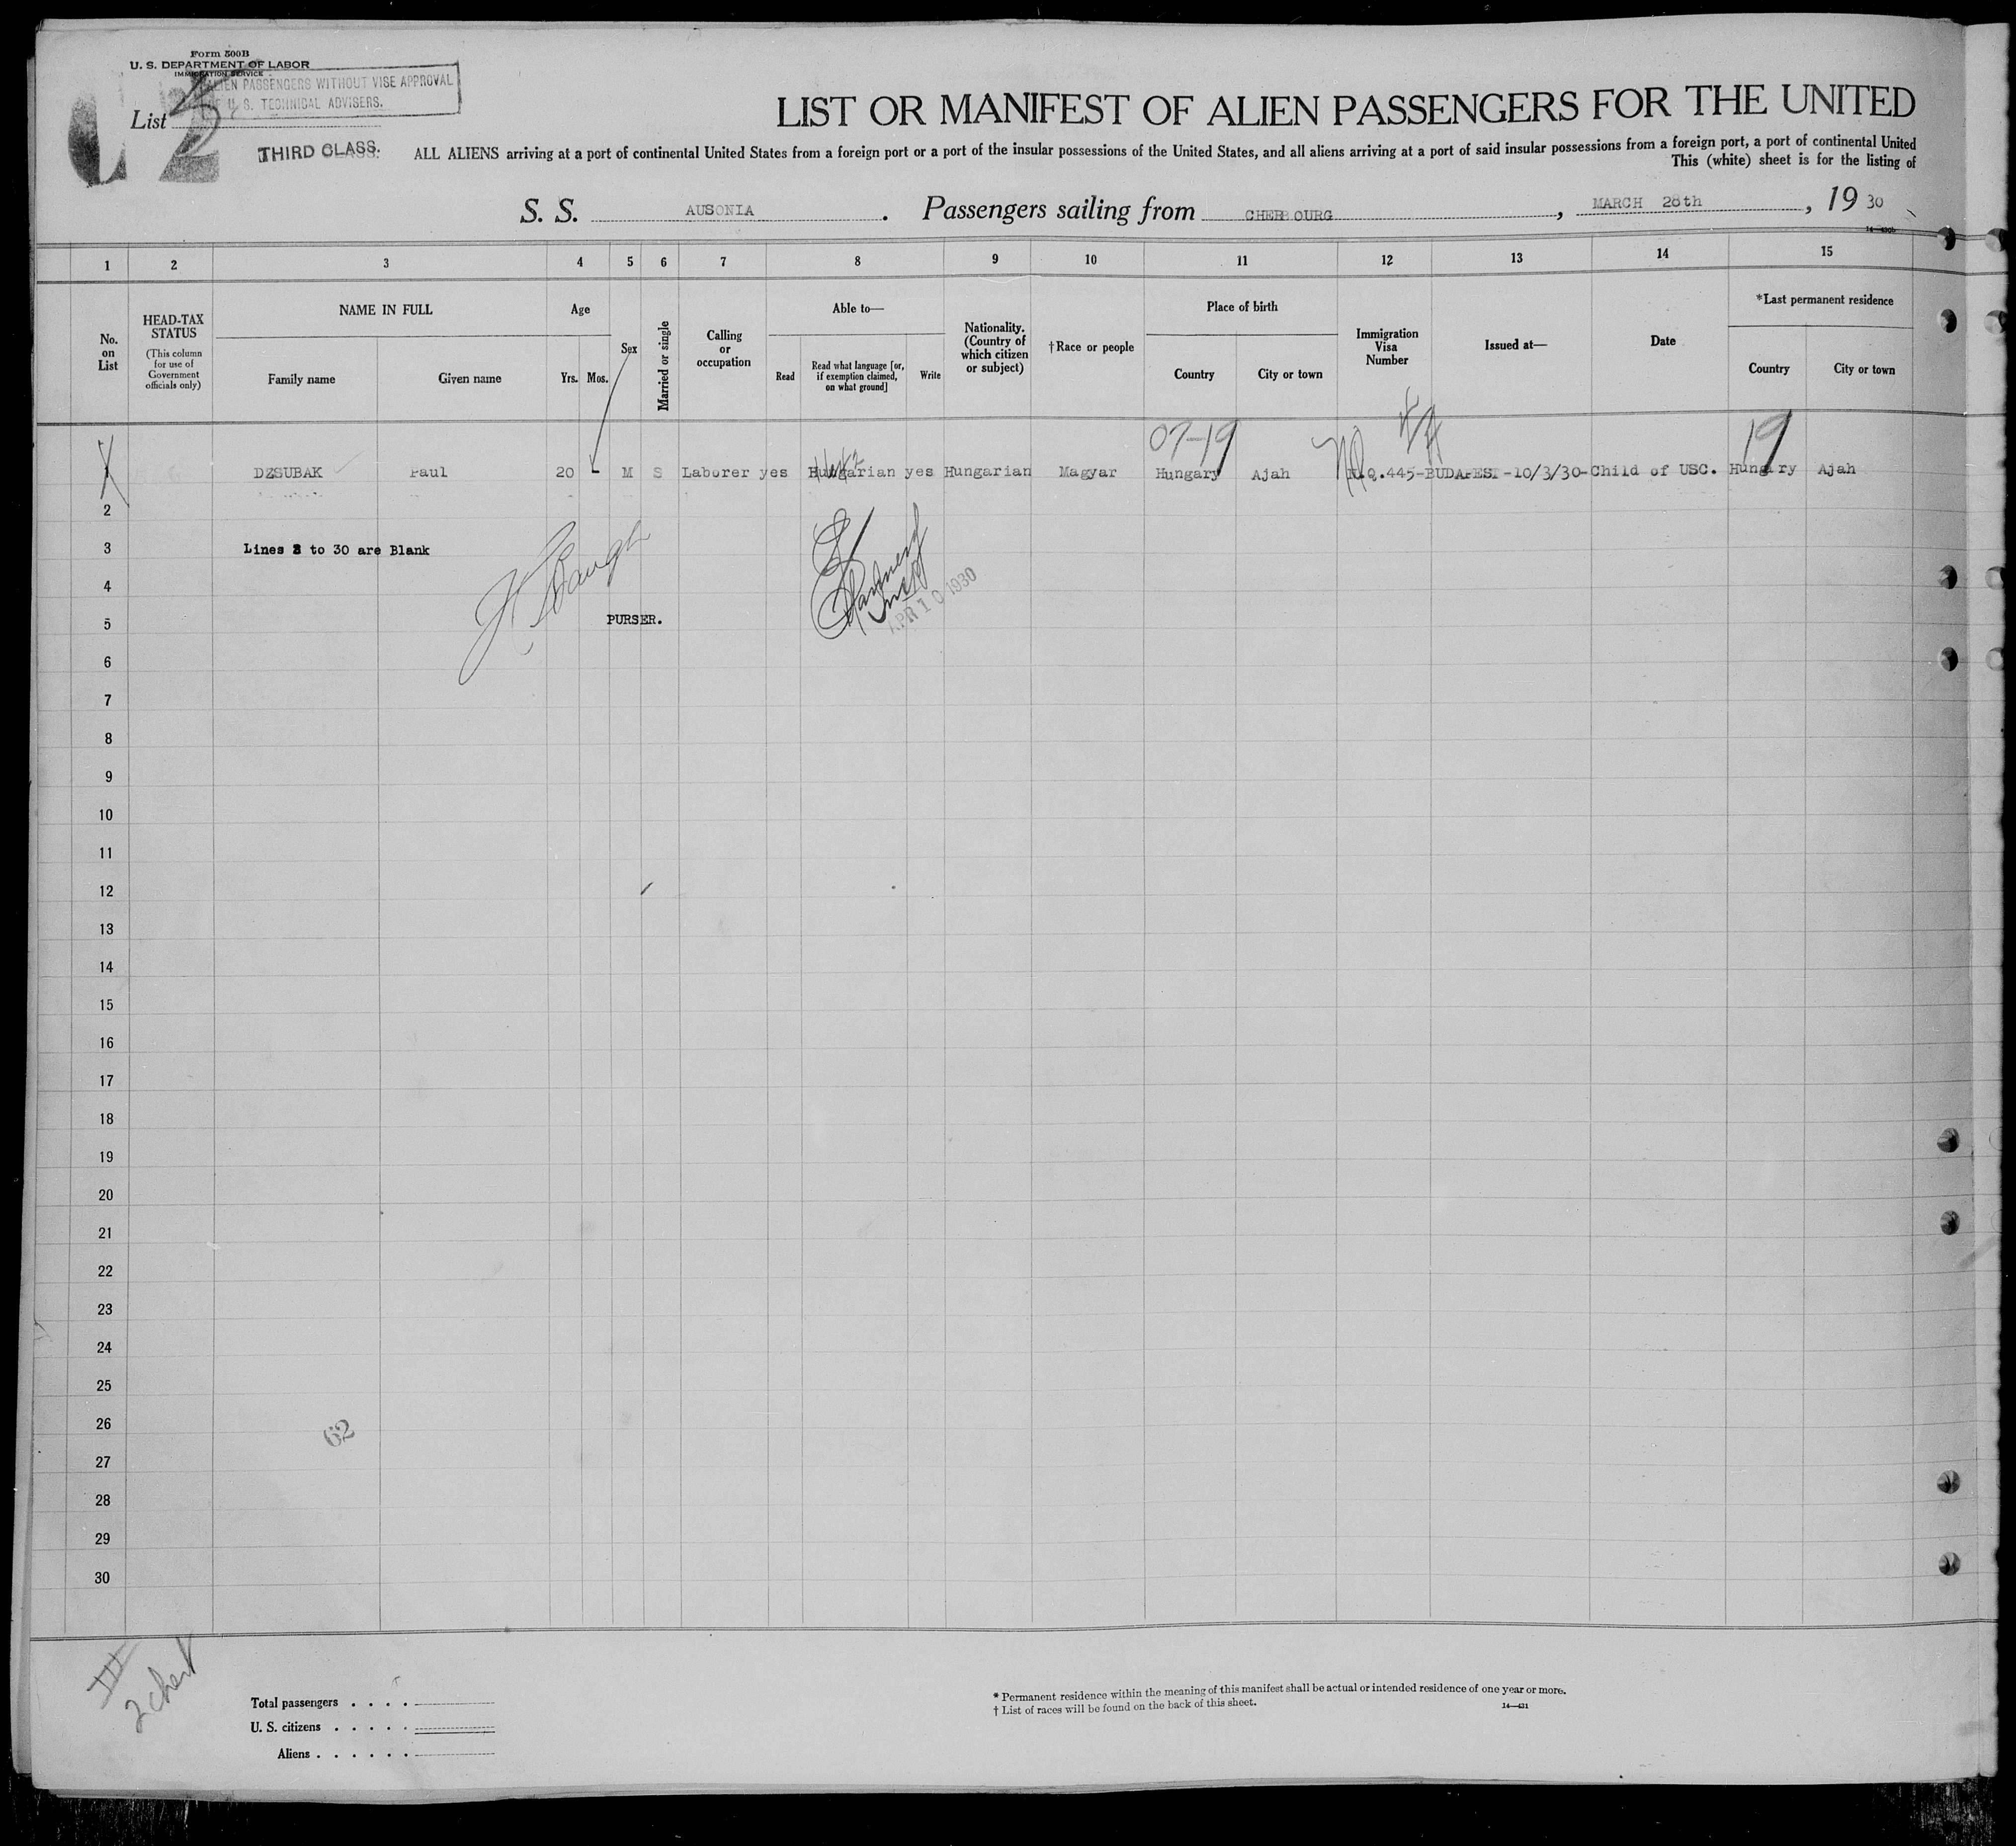 Form 500B
U. S. DEPARTMENT OF LABOR
IMMIGRATION SERVICE
ALIEN PASSENGERS WITHOUT VISE APPROVAL
U. S. TECHNICAL ADVISERS.
List
THIRD CLASS.
LIST OR MANIFEST OF ALIEN PASSENGERS FOR THE UNITED
ALL ALIENS arriving at a port of continental United States from a foreign port or a port of the insular possessions of the United States, and all aliens arriving at a port of said insular possessions from a foreign port, a port of continental United
This (white) sheet is for the listing of
S. S. AUSONIA. Passengers sailing from CHERBOURG, MARCH 28th, 19 30
14—430b
1 2 3 4 5 6 7 8 9 10 11 12 13 14 15
No. on List
HEAD-TAX STATUS
(This column for use of Government officials only)
NAME IN FULL
Family name
Given name
Age
Yrs.
Mos.
Sex
Married or single
Calling or occupation
Able to—
Read
Read what language [or, if exemption claimed, on what ground]
Write
Nationality. (Country of which citizen or subject)
†Race or people
Place of birth
Country
City or town
Immigration Visa Number
Issued at—
Date
*Last permanent residence
Country
City or town
07-19
19
DZSUBAK Paul 20 - M S Laborer yes Hungarian yes Hungarian Magyar Hungary Ajah N.Q.445-BUDAPEST-10/3/30-Child of USC. Hungary Ajah
2
3 Lines 2 to 30 are Blank
4
5 PURSER.
APR 10 1930
6
7
8
9
10
11
12
13
14
15
16
17
18
19
20
21
22
23
24
25
26
62
27
28
29
30
III
2 cher
Total passengers . . . .
U. S. citizens . . . . .
Aliens . . . . . .
* Permanent residence within the meaning of this manifest shall be actual or intended residence of one year or more.
† List of races will be found on the back of this sheet.
14—431